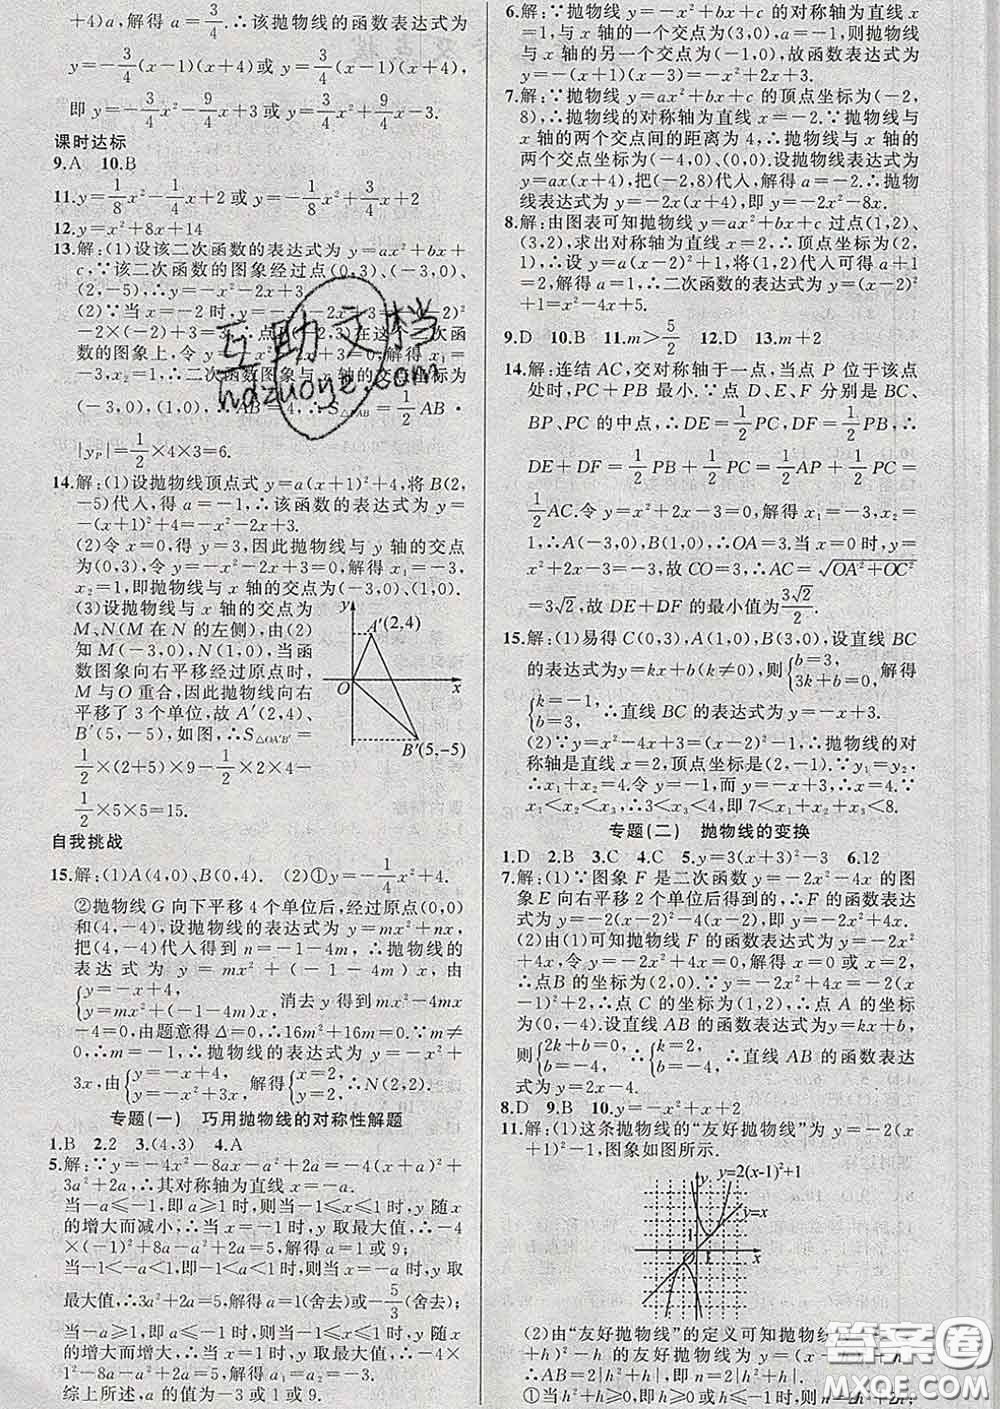 +4)a,解得 a=3/4.∴该抛物线的函数表达式为
y=-3/4(x-1)(x+4)或 y=3/4(x-1)(x+4),
即 y=-3/4x²-9/4x+3 或 y=3/4x²+9/4x-3.
课时达标
9.A 10.B
11.y=1/8x²-1/4x+2 或 y=-1/8x²+3/4x+2
12.y=x²+8x+14
13.解:(1)设该二次函数的表达式为 y=ax²+bx+
c,∵该二次函数的图象经过点(0,3)、(-3,0)、
(2,-5),∴y=-x²-2x+3.
(2)∵当 x=-2 时,y=-(-2)²-
2×(-2)+3=3,∴点P(-2,3)在这个二次函
数的图象上,令-x²-2x+3=0,解得 x₁=
-3,x₂=1,∴二次函数图象与 x 轴的交点坐标为
(-3,0),(1,0),∴AB=4,∴S△PAB=1/2AB·
|yP|=1/2×4×3=6.
14.解:(1)设抛物线顶点式 y=a(x+1)²+4,将 B(2,
-5)代入,得 a=-1,∴该函数的表达式为 y=
-(x+1)²+4=-x²-2x+3.
(2)令 x=0,得 y=3,因此抛物线与 y 轴的交点
为(0,3),令 y=-x²-2x+3=0,解得 x₁=-3,
x₂=1,即抛物线与 x 轴的交点为(-3,0),(1,0).
(3)设抛物线与 x 轴的交点为
M、N(M 在 N 的左侧),由(2)
知 M(-3,0),N(1,0),当
函数图象向右平移经过原点时,
M 与O 重合,因此抛物线向右
平移了 3 个单位,故 A′(2,4)、
B′(5,-5),如图,∴S△OA′B′=
1/2×(2+5)×9-1/2×2×4-
1/2×5×5=15.
y
A′(2,4)
O
x
B′(5,-5)
自我挑战
15.解:(1)A(4,0)、B(0,4). (2)①y=-1/4x²+4.
②抛物线 G 向下平移 4 个单位后,经过原点(0,0)
和(4,-4),设抛物线的表达式为 y=mx²+nx,
把(4,-4)代入得到 n=-1-4m,∴抛物线的
表达式为 y=mx²+(-1-4m)x,由
{y=-x+4, 消去 y 得到 mx²-4mx
-4=0,由题意得 Δ=0,∴16m²+16m=0,∵m≠
0,∴m=-1,∴抛物线的表达式为 y=-x²+
3x,由{y=-x+4, y=-x²+3x, 解得{x=2, y=2, ∴N(2,2).
专题(一) 巧用抛物线的对称性解题
1.B 2.2 3.(4,3) 4.A
5.解:∵y=-4x²-8ax-a²+2a=-4(x+a)²+
3a²+2a,∴其对称轴为直线 x=-a.
当-a≤-1,即 a≥1 时,则当-1≤x≤1 时,y 随 x
的增大而减小,∴当 x=-1 时,y 取最大值,∴-4
×(-1)²+8a-a²+2a=5,解得 a=1 或 9;
当-1<-a<1,即-1<a<1 时,则当 x=-a 时,y 取
最大值,∴3a²+2a=5,解得 a=1(舍去)或-5/3(舍去);
当-a≥1,即 a≤-1 时,则当-1≤x≤1 时,y 随 x 的
增大而增大,∴当 x=1 时,y 取最大值,∴-4
×1²-8a-a²+2a=5,解得 a=-3 或-3(舍去).
综上所述,a 的值为-3 或 1 或 9.
6.解:∵抛物线 y=-x²+bx+c 的对称轴为直线 x
=1,与 x 轴的一个交点为(3,0),则抛物线与 x 轴
的另一个交点为(-1,0),∵a=-1,故函数表达式
为 y=-(x+1)(x-3)=-x²+2x+3.
7.解:∵抛物线 y=ax²+bx+c 的顶点坐标为(-2,
8),∴抛物线的对称轴为直线 x=-2.∵抛物线与 x
轴的两个交点间的距离为 4,∴抛物线与 x 轴的
两个交点坐标为(-4,0)、(0,0).设抛物线表达式为
y=ax(x+4),把(-2,8)代入,解得 a=-2.∴抛物
线表达式为 y=-2x(x+4),即 y=-2x²-8x.
8.解:由图表可知抛物线 y=ax²+bx+c 过点(1,2)、
(3,2),求出对称轴为直线 x=2,∴顶点坐标为(2,
1),设 y=a(x-2)²+1,将(1,2)代入可得 2=a(1
-2)²+1,解得 a=1,∴二次函数表达式为 y=(x-2)²
+1=x²-4x+5.
9.D 10.B 11.m>5/2 12.D 13.m+2
14.解:连结 AC,交对称轴于一点,当点 P 位于该点
处时,PC+PB 最小.∵点 D、E、F 分别是 BC、
BP、PC 的中点,∴DE=1/2PC,DF=1/2PB,∴
DE+DF=1/2PB+1/2PC=1/2AP+1/2PC=
1/2AC.令 y=x²+2x-3=0,解得 x₁=-3,x₂=
1,∴A(-3,0),B(1,0),∴OA=3.当 x=0 时,y=
x²+2x-3=-3,故 CO=3,∴AC=√(OA²+OC²)
=3√2,故 DE+DF 的最小值为3√2/2.
15.解:(1)易得 C(0,3),A(1,0),B(3,0),设直线 BC
的表达式为y=kx+b(k≠0),则{b=3, 3k+b=0, 解得
{k=-1, b=3, ∴直线 BC 的表达式为 y=-x+3.
(2)∵y=x²-4x+3=(x-2)²-1,∴抛物线的对
称轴是直线 x=2,顶点坐标是(2,-1).∵y₁=y₂.
∴x₁+x₂=4.令 y=-1,而 y=-x+3,x=4.∵
x₁<x₂<x₃,∴3<x₃<4,即 7<x₁+x₂+x₃<8.
专题(二) 抛物线的变换
1.D 2.B 3.C 4.C 5.y=3(x+3)²-3 6.12
7.解:(1)∵图象 F 是二次函数 y=-2x²-4x 的图
象 E 向右平移 2 个单位后得到的,∴F 的函数表达
式为 y=-2(x-2)²-4(x-2),即 y=-2x²+4x.
(2)由(1)可知抛物线 F 的函数表达式为 y=-2x²+
4x,令 y=0,得-2x²+4x=0,解得 x=0 或 x=2,
∴点B 的坐标为(2,0).∵y=-2x²+4x=-2(x
-1)²+2,∴点 C 的坐标为(1,2),∴点 A 的坐标
为(0,-4).设直线 AB 的函数表达式为 y=kx+b,
则{2k+b=0, ∴{k=2, b=-4, ∴直线 AB 的函数表达
式为 y=2x-4.
8.D 9.B 10.y=-x²+x+2
11.解:(1)这条抛物线的“友好抛物线”为 y=-2(x
+1)²-1,图象如图所示.
y
y=2(x-1)²+1
y=x
x
(2)由“友好抛物线”的定义可知抛物线
+h)²-h 的友好抛物线为 y=
①当 h²+h≥0,即 h≥0 或 h≤-1 时,则
互助文档
hdzuoye.com
答案圈
MXQE.COM